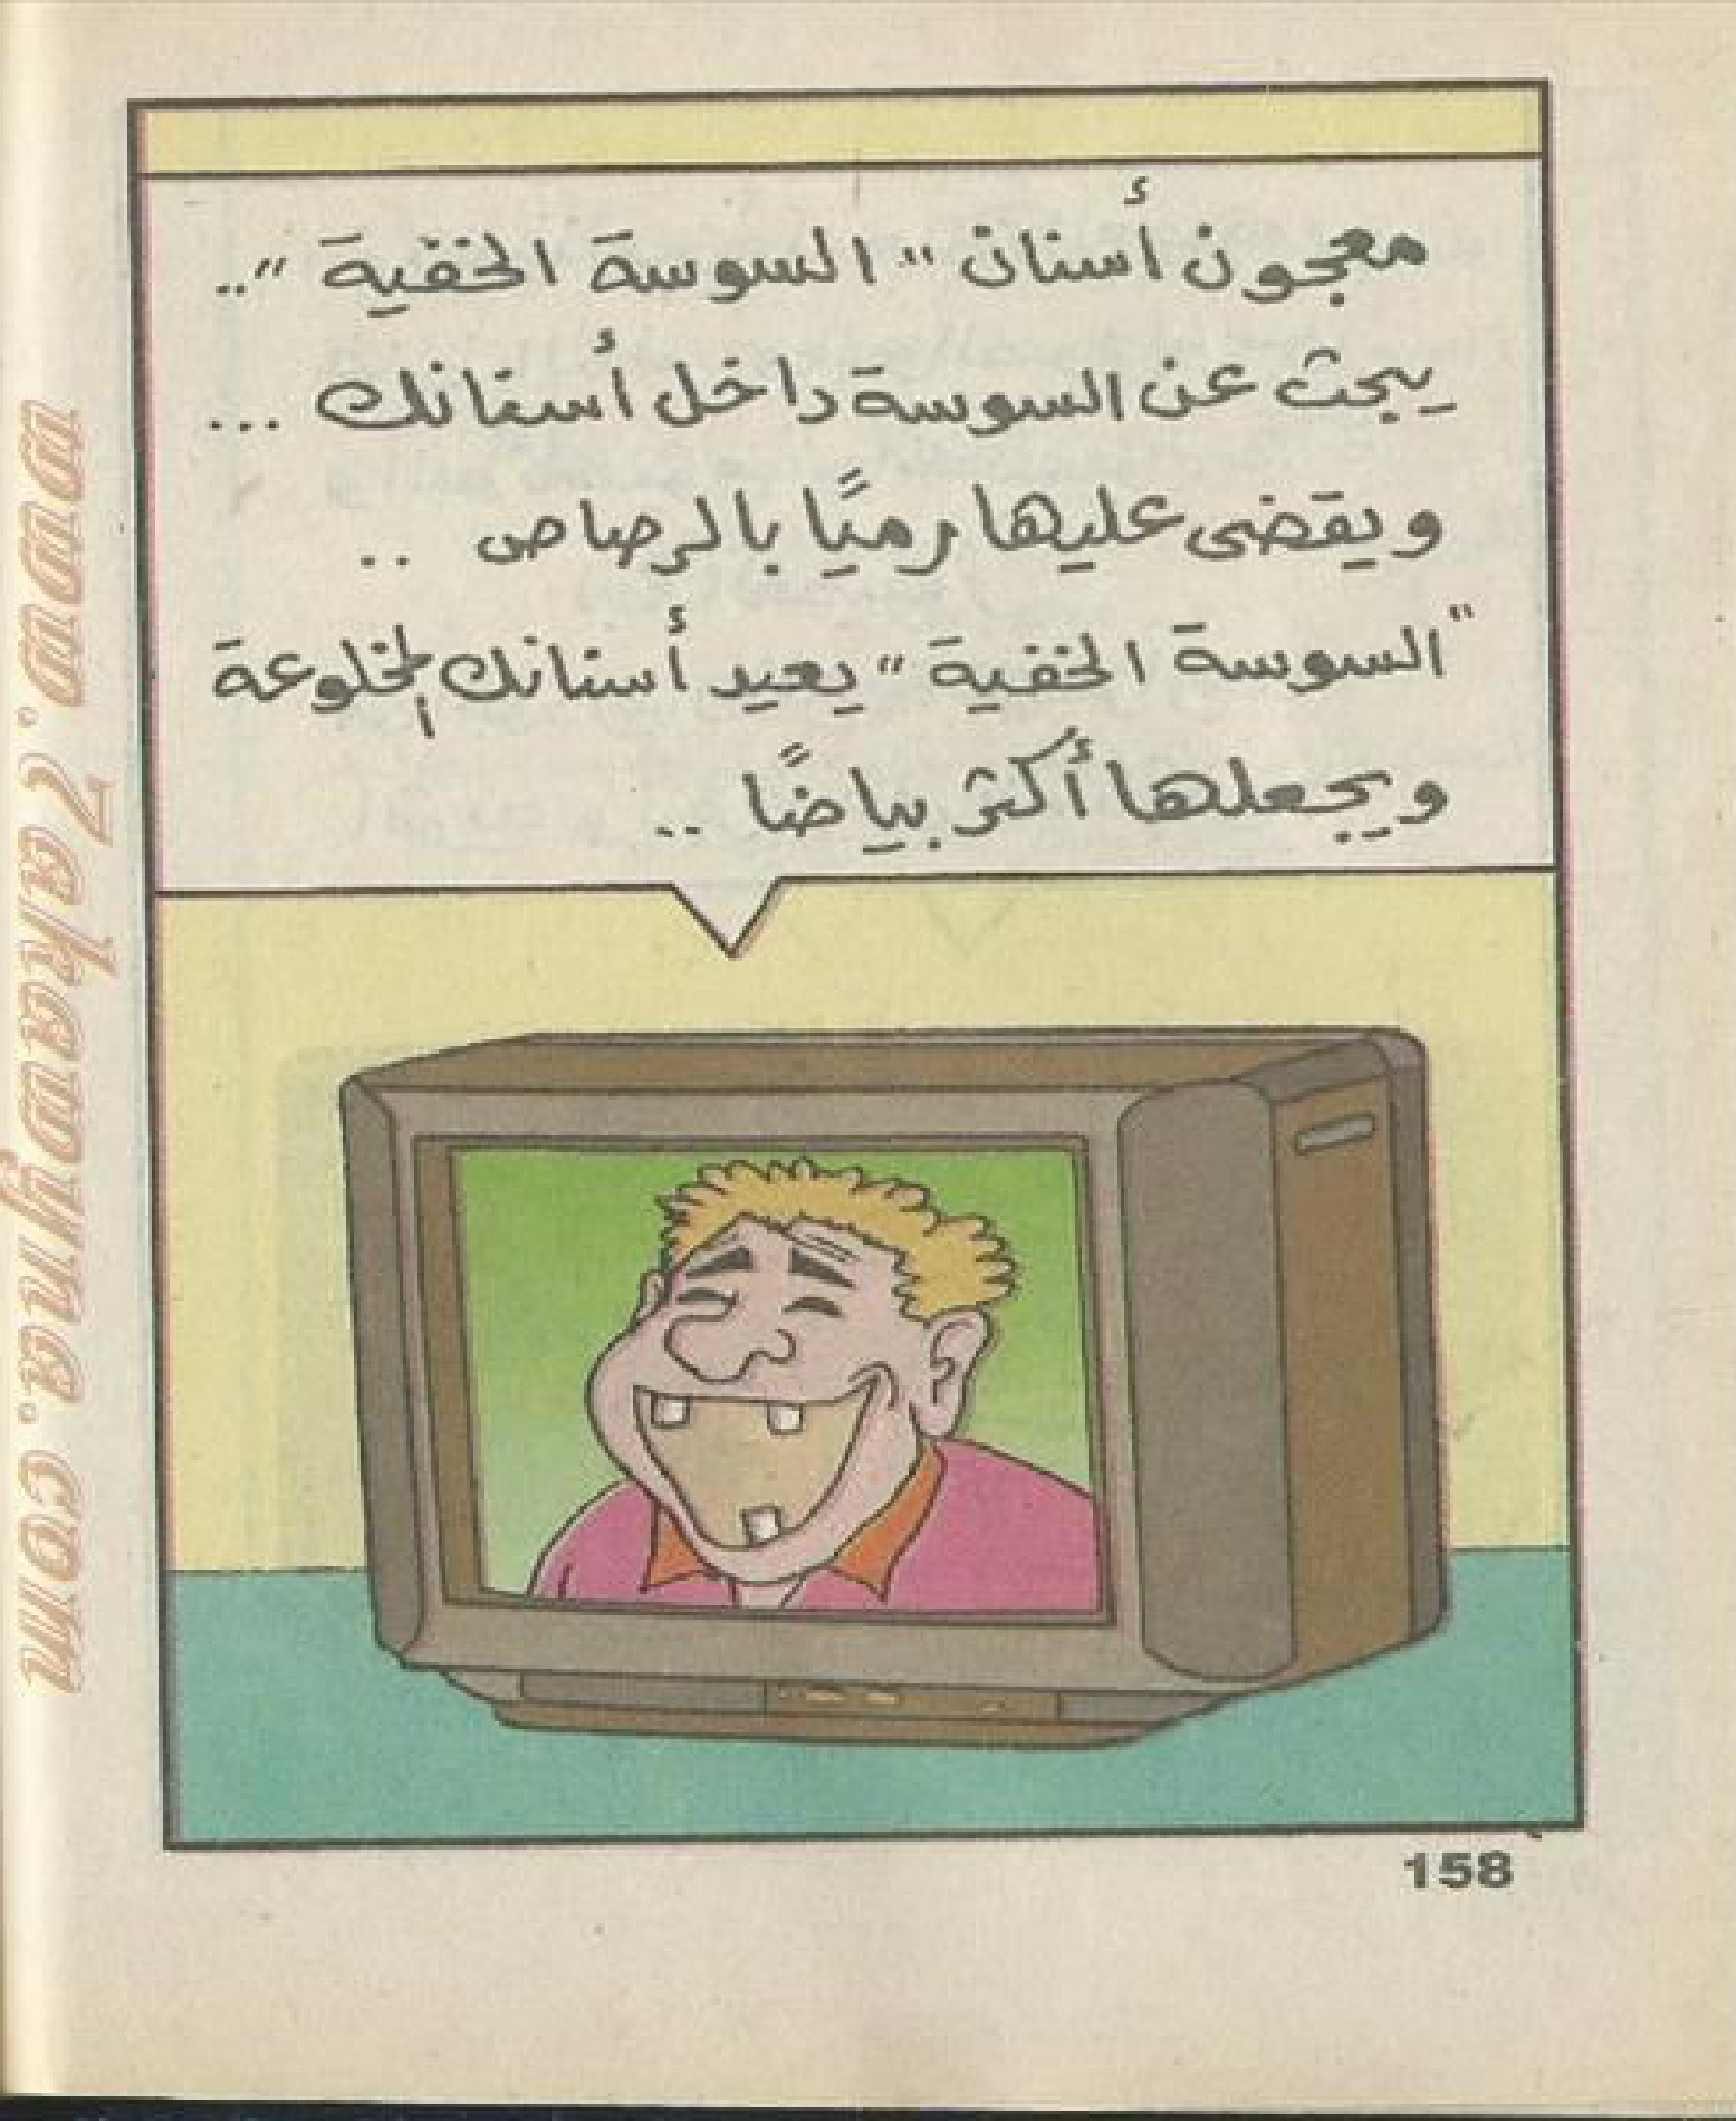 معجون أسنان "السوسة الخفية"..
يبحث عن السوسة داخل أسنانك ...
ويقضى عليها رميًا بالرصاص ..
"السوسة الخفية" يعيد أسنانك المخلوعة
ويجعلها أكثر بياضًا ..
158
www.7akawyna.com